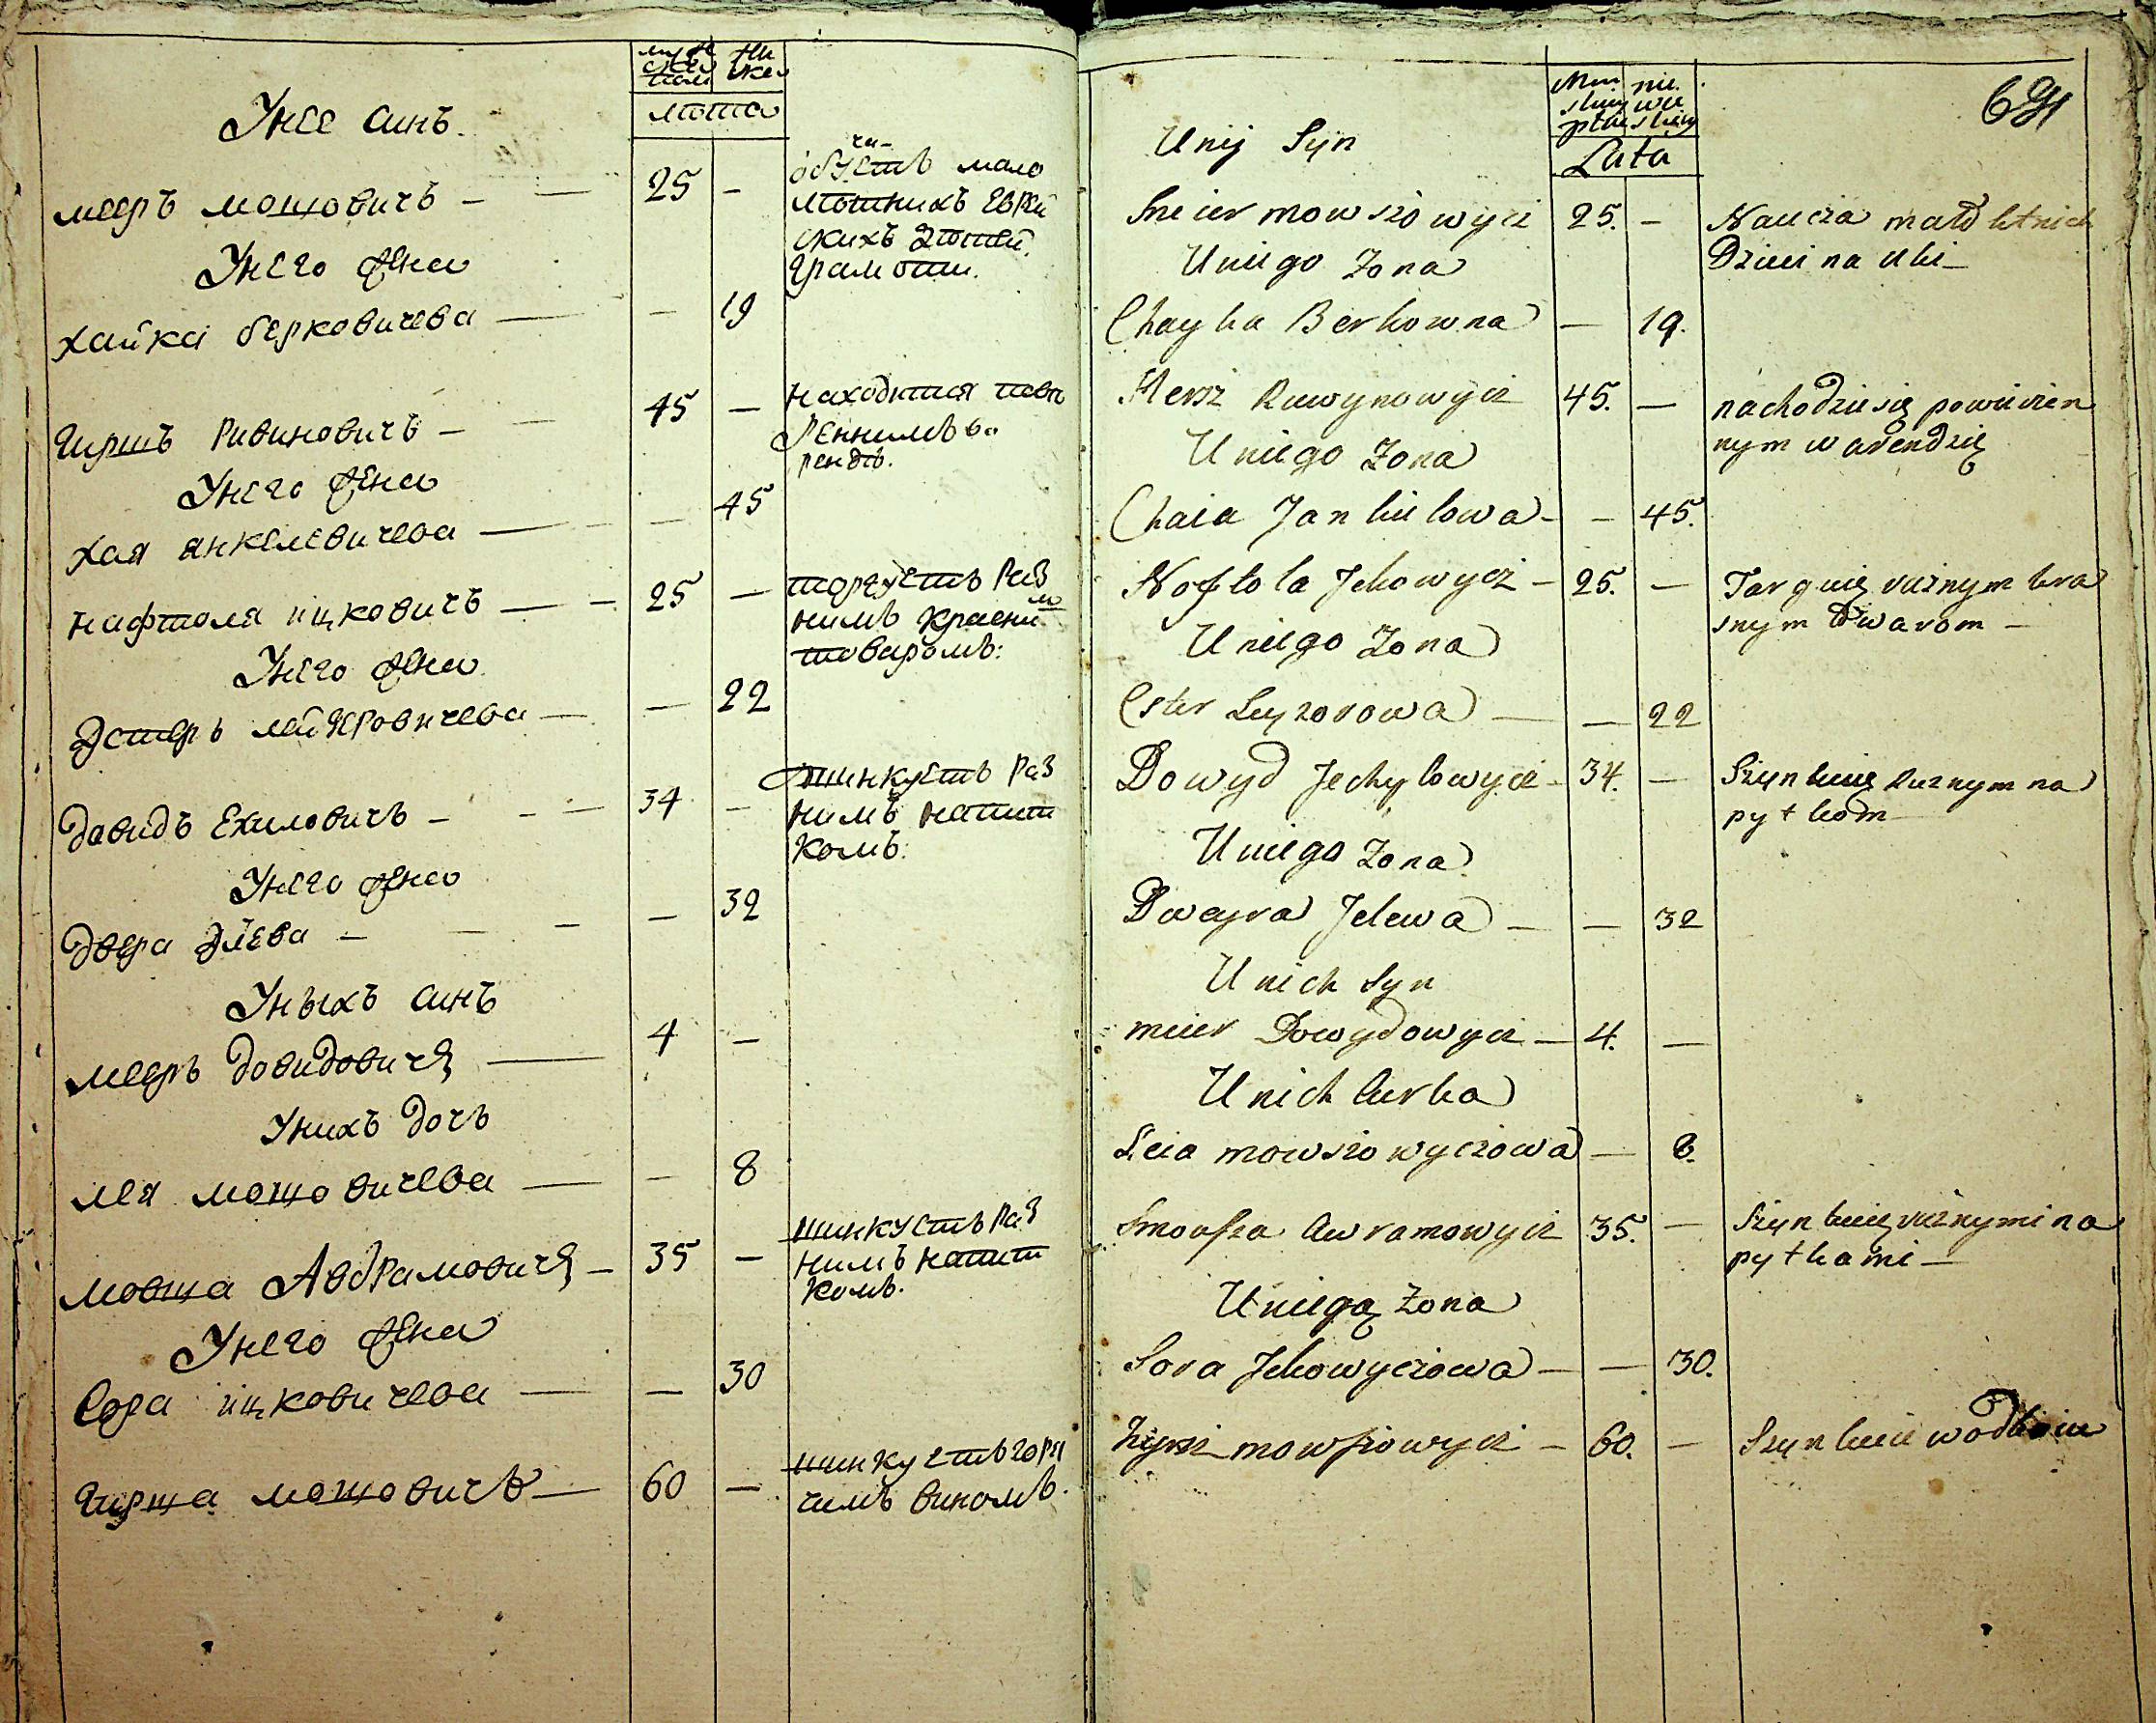 Унее синъ.
лета
мееръ мошовичъ — — 25 —
обучаетъ мало
летнихъ еврей
скихъ детей
грамоти.
Унего жена
хайка берковичева — — 19
гиршъ Ривиновичъ — — 45 —
находится пове
реннимъ ва
рендъ.
Унего жена
хая янкелевичева — — 45
нафтоля ицковичъ — — 25 —
торгуетъ раз
нимъ краснимъ
товаромъ:
Унего жена
Эстеръ лейзеровичева — — 22
Давидъ Ехиловичъ — — — 34 —
шинкуетъ раз
нимъ напит
комъ:
Унего жена
Двера Элева — — — — 32
Уныхъ синъ
мееръ Довидовичъ — 4 —
Унихъ дочъ
лея мошовичева — — 8
мовша Авврамовичъ — 35 —
шинкуетъ раз
нимъ напит
комъ.
Унего жена
Сора ицковичева — — 30
гирша мошовичъ — 60 —
шинкуетъ горя
чимъ виномъ.
69
Unij Syn
Lata
Smeier mowszowycz 25. —
Naucza mało letnich
Dzieci na uki —
Uniego Zona
Chayka Berkowna — 19.
Hersz Ruwynowycz 45. —
nachodzie się powierzen
nym w arendzię
Uniego Zona
Chaia Jankielowa — — 45.
Noftola Jckowycz — 25. —
Targuię rużnym kra
snym towarom —
Uniego Zona
Ester Leyzorowa — — 22
Dowyd Jechylowycz — 34. —
Szynkuię Rużnym na
pytkom —
Uniego Zona
Dweyra Jelewa — — 32
Unich Syn
meier Dowydowycz — 4. —
Unich Curka
Leia mowszowyczowa — 8.
Smowsza Awramowycz 35. —
Szynkuię rużnymi na
pytkami —
Uniego Zona
Sora Jckowyczowa — — 30.
hyrsz mowszowycz — 60. —
Szynkuie wodkoiu